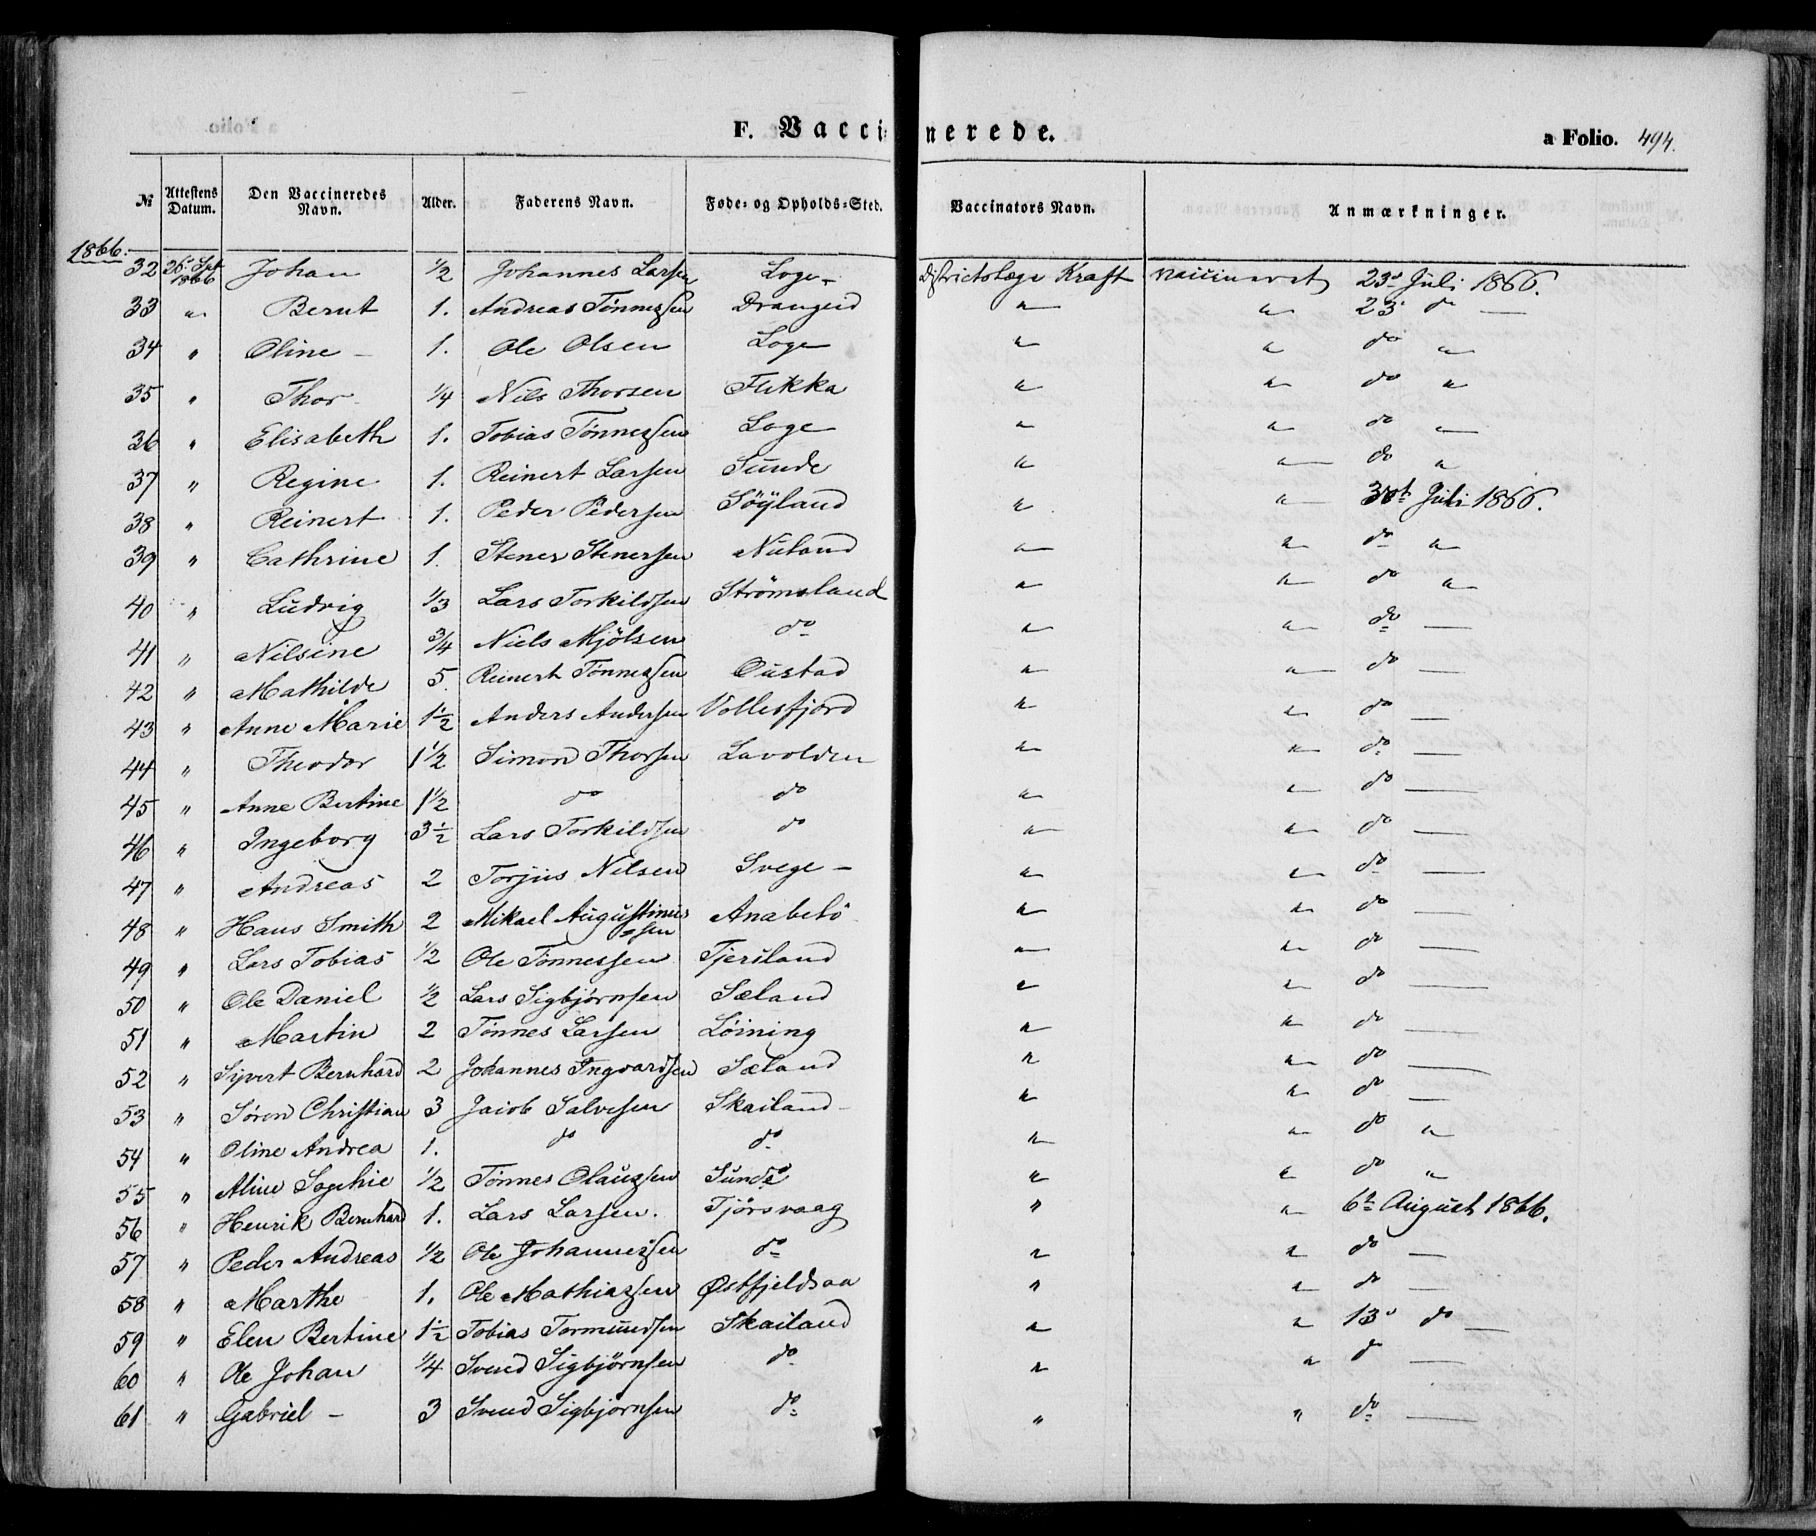 F. Vaccinerede. a Folio. 494.
№ Attestens Datum. Den Vaccineredes Navn. Alder. Faderens Navn. Føde- og Opholds-Sted. Vaccinators Navn. Anmærkninger.
1866.
32 26. Spt 1866 Johan 1/2 Johannes Larsen Loge - Districtslæge Kraft vaccineret 23d Juli 1866.
33 " Bernt 1. Andreas Tønnessen Drangeid " " 23d do —
34 " Oline - 1. Ole Olsen Loge " " do "
35 " Thor 1/4 Nils Thorsen Flikka " " do "
36 " Elisabeth 1. Tobias Tönnessen Loge " " do "
37 " Regine 1. Reinert Larsen Sunde " " do "
38 " Reinert 1. Peder Pedersen Söyland " " 30t Juli 1866.
39 " Cathrine 1. Stener Stenersen Nuland " " do "
40 " Ludvig 1/3 Lars Torkildsen Strömsland " " do "
41 " Nilsine 3/4 Niels Mjölsen do " " do —
42 " Mathilde 5. Reinert Tönnessen Oustad " " do —
43 " Anne Marie 1 1/2 Anders Andersen Vollesfjord " " do —
44 " Theodor 1 1/2 Simon Thorsen Lavolden " " do —
45 " Anne Bertine 1 1/2 do do " " do —
46 " Ingeborg 3 1/2 Lars Torkildsen do " " do —
47 " Andreas 2 Torjus Nilsen Svege - " " do —
48 " Hans Smith 2 Mikael Augustinussen Anabelö " " do —
49 " Lars Tobias 1/2 Ole Tönnessen Tjersland " " do —
50 " Ole Daniel 1/2 Lars Sigbjörnsen Sæland " " do —
51 " Martin 2 Tönnes Larsen Löining " " do —
52 " Sivert Bernhard 2 Johannes Ingvardsen Sæland " " do —
53 " Sören Christian 3 Jacob Salvesen Skailand - " " do —
54 " Oline Andrea 1. do do " " do "
55 " Aline Sophie 1/2 Tönnes Olaussen Sunde " " do "
56 " Henrik Bernhard 1. Lars Larsen. Tjörsvaag " " 6t August 1866.
57 " Peder Andreas 1/2 Ole Johannessen do " " do —
58 " Marthe 1. Ole Mathiassen Østfjeldsaa " " do —
59 " Elen Bertine 1 1/2 Tobias Tormundsen Skailand " " 13d do —
60 " Ole Johan 1/4 Svend Sigbjörnsen do " " do —
61 " Gabriel - 3 Svend Sigbjörnsen do " " do —